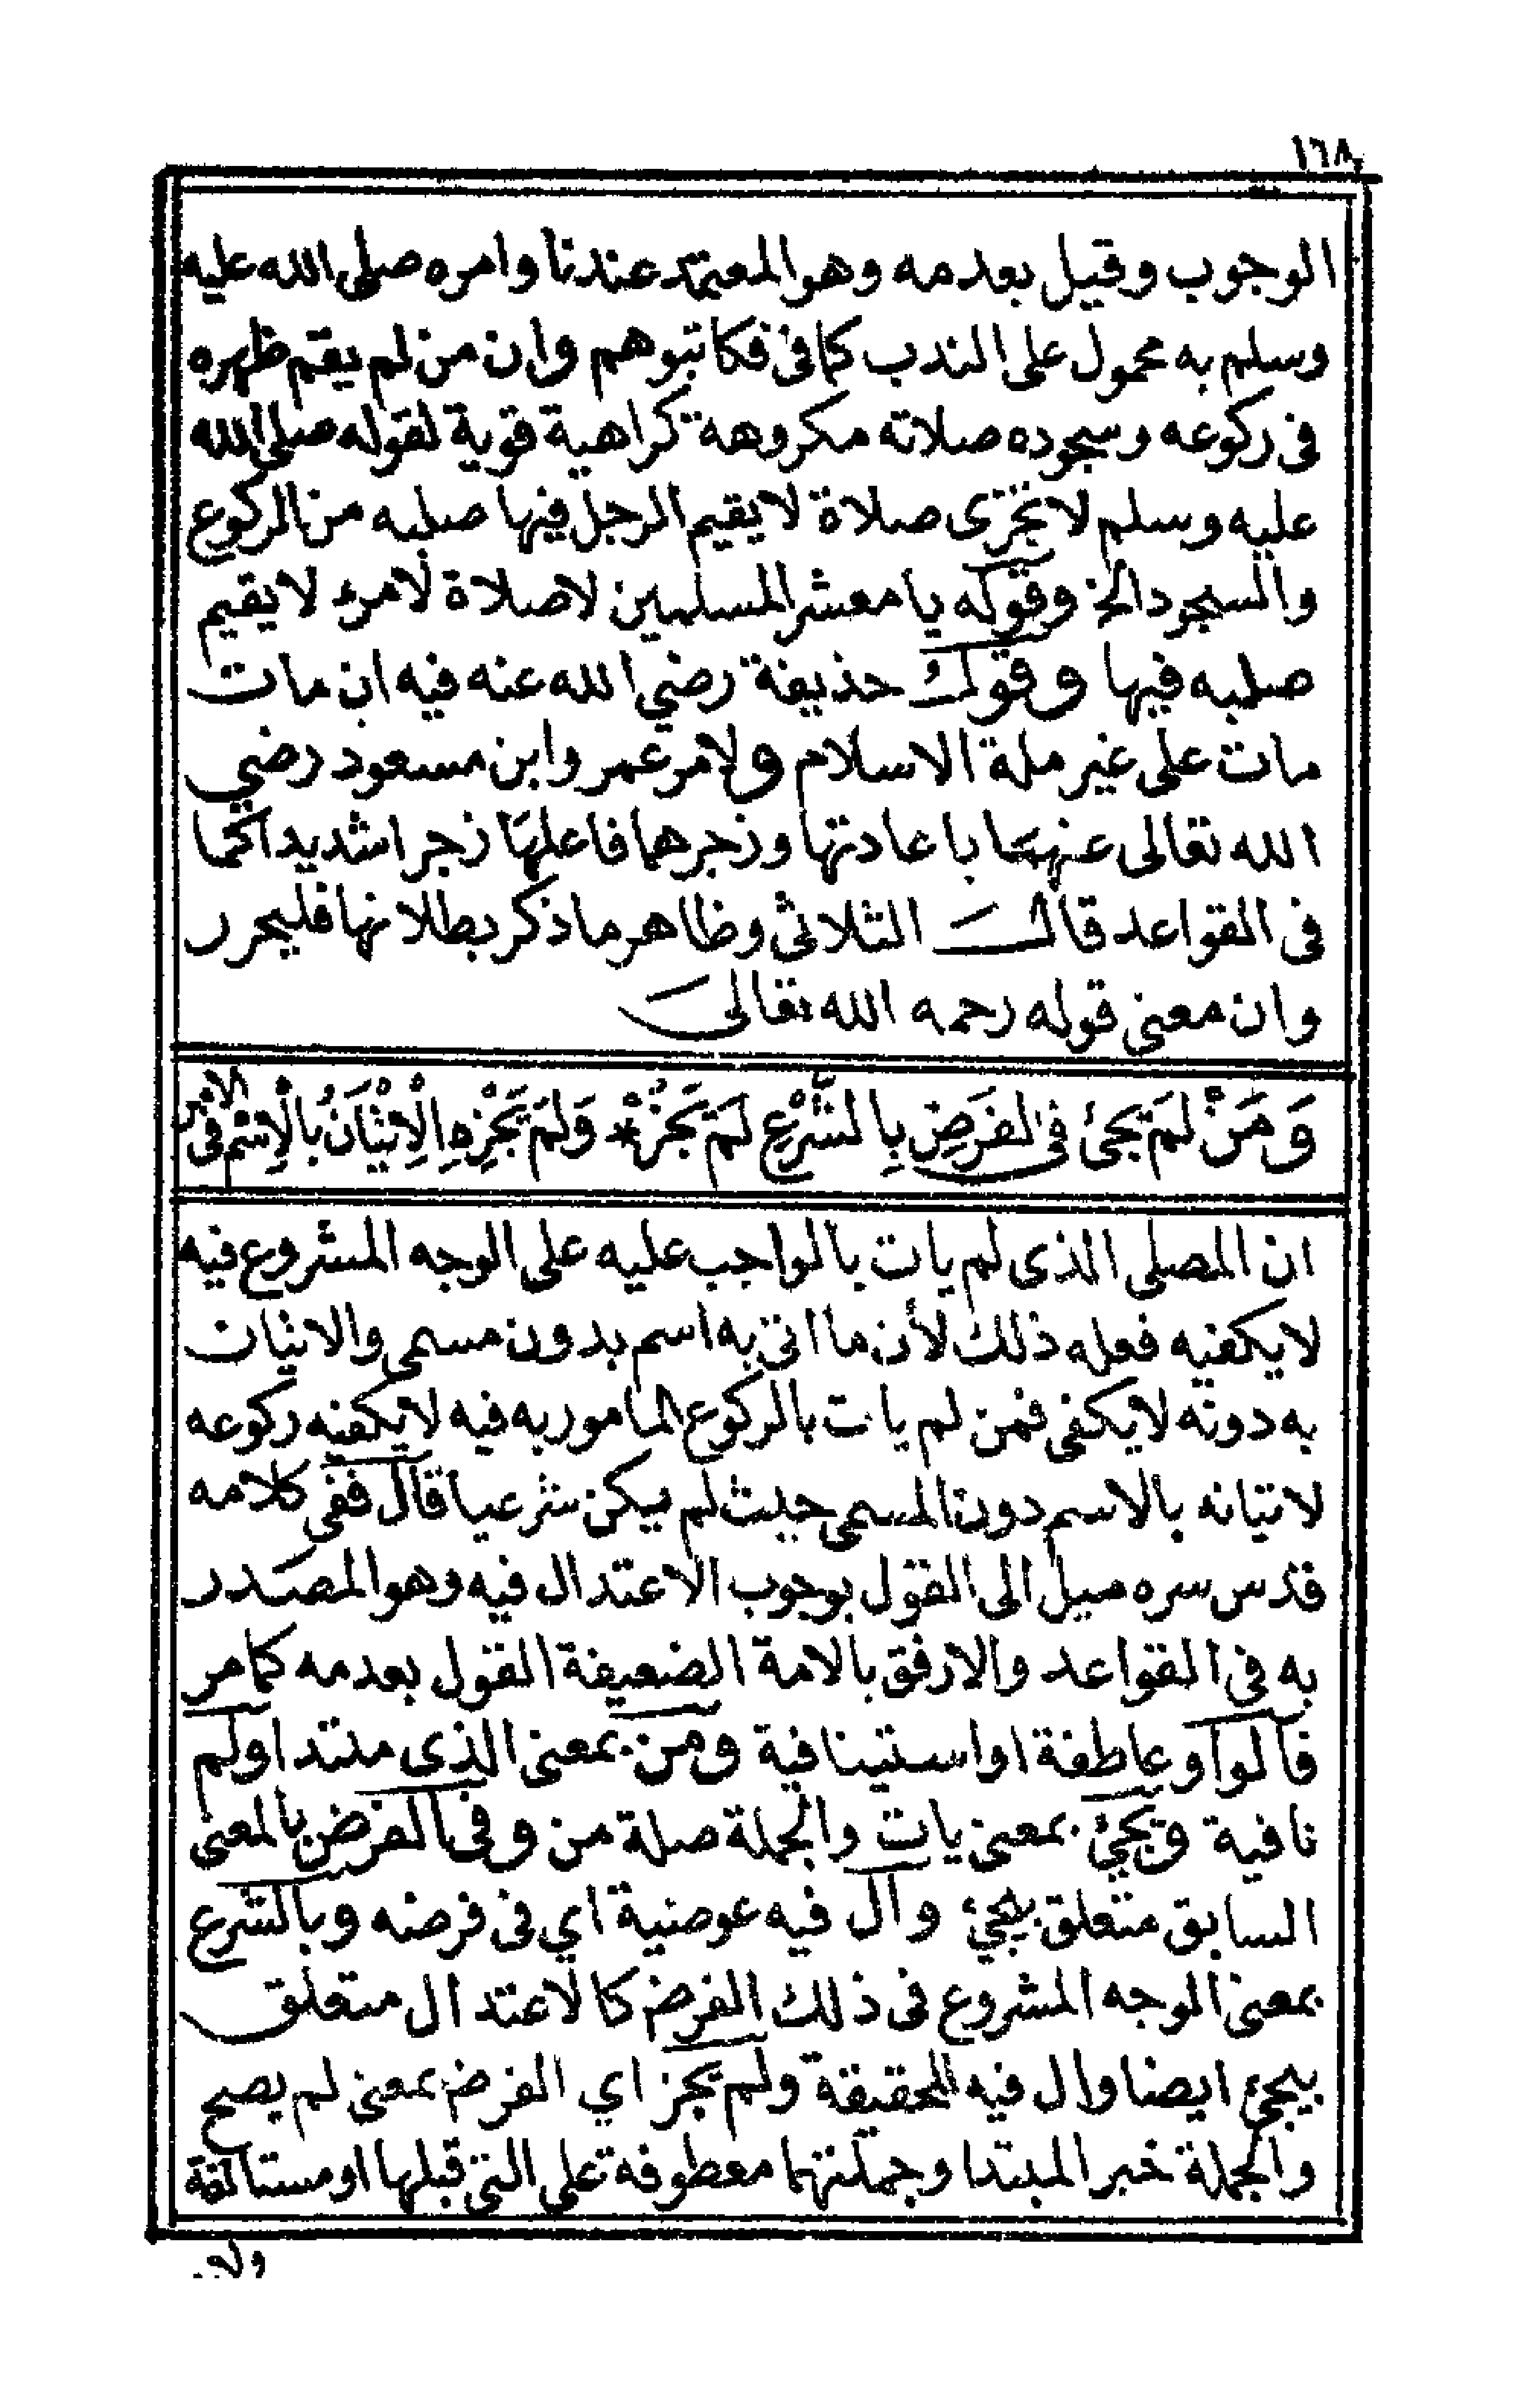 ١٦٨
الوجوب وقيل بعدمه وهو المعتمد عندنا وامره صلى الله عليه
وسلم به محمول على الندب كما فى فكاتبوهم وان من لم يقم ظهره
فى ركوعه وسجوده صلاته مكروهة كراهية قوية لقوله صلى الله
عليه وسلم لا تجزى صلاة لا يقيم الرجل فيها صلبه من الركوع
والسجود الخ وقوله يا معشر المسلمين لا صلاة لامرء لا يقيم
صلبه فيها وقول حذيفة رضي الله عنه فيه ان مات
مات على غير ملة الاسلام ولامر عمر وابن مسعود رضي
الله تعالى عنهما باعادتها وزجرهما فاعلها زجرا شديدا كما
فى القواعد قال الثلاثى وظاهر ما ذكر بطلانها فليحرر
وان معنى قوله رحمه الله تعالى
وَمَنْ لَمْ يَجِئ فى الفَرَضِ بِالشَّرْعِ لَمْ يَجُزْ * وَلَمْ يَجْزِهِ الْاِتْيَانُ بِالْاِسْمِ فى الاثر
ان المصلى الذى لم يات بالواجب عليه على الوجه المشروع فيه
لا يكفيه فعله ذلك لأن ما اتى به اسم بدون مسمى والاتيان
به دونه لا يكفى فمن لم يات بالركوع المامور به فيه لا يكفيه ركوعه
لاتيانه بالاسم دون المسمى حيث لم يكن شرعيا قال ففى كلامه
قدس سره ميل الى القول بوجوب الاعتدال فيه وهو المصدر
به فى القواعد والارفق بالامة الضعيفة القول بعدمه كما مر
فالواو عاطفة او استينافية ومن بمعنى الذى مبتدا ولم
نافية ويجئ بمعنى يات والجملة صلة من وفى الفرض بالمعنى
السابق متعلق بيجئ وال فيه عوضية اي فى فرضه وبالشرع
بمعنى الوجه المشروع فى ذلك الفرض كالاعتدال متعلق
بيجئ ايضا وال فيه للحقيقة ولم يجز اي الفرض بمعنى لم يصح
والجملة خبر المبتدا وجملتهما معطوفة على التى قبلها او مستانفة